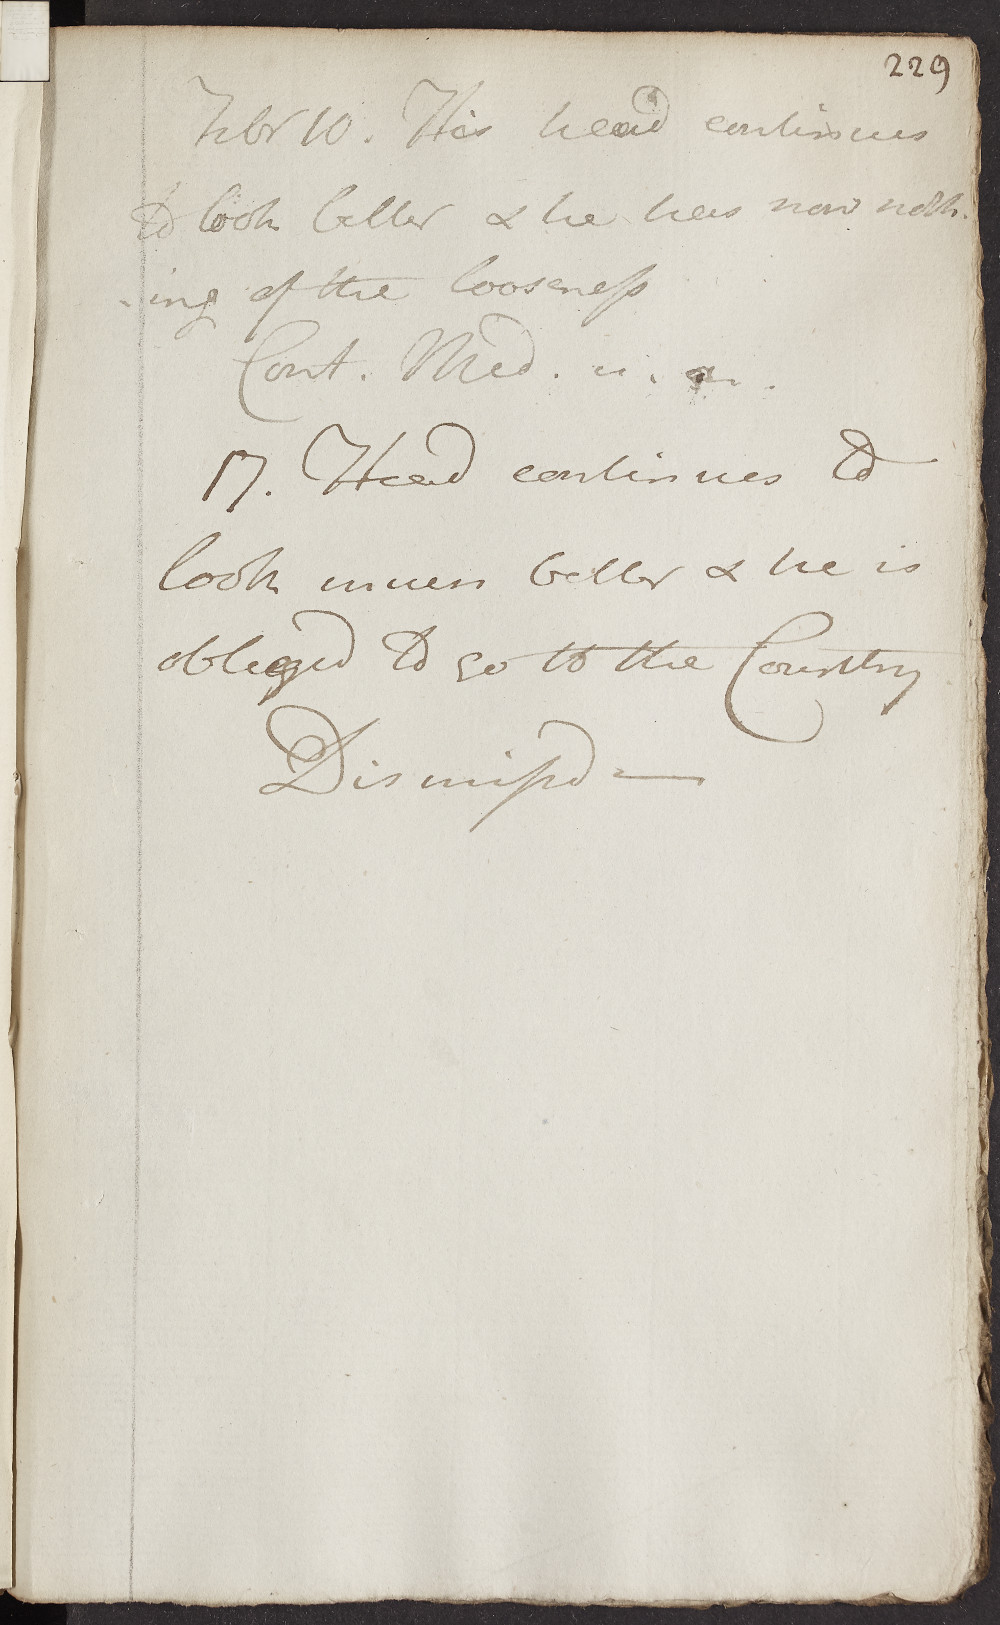 229
Febr 10. His head continues
to look better & he has now noth-
-ing of the looseness
Cont. Med. u. a.
17. Head continues to
look much better & he is
obliged to go to the Country
Dismissd —